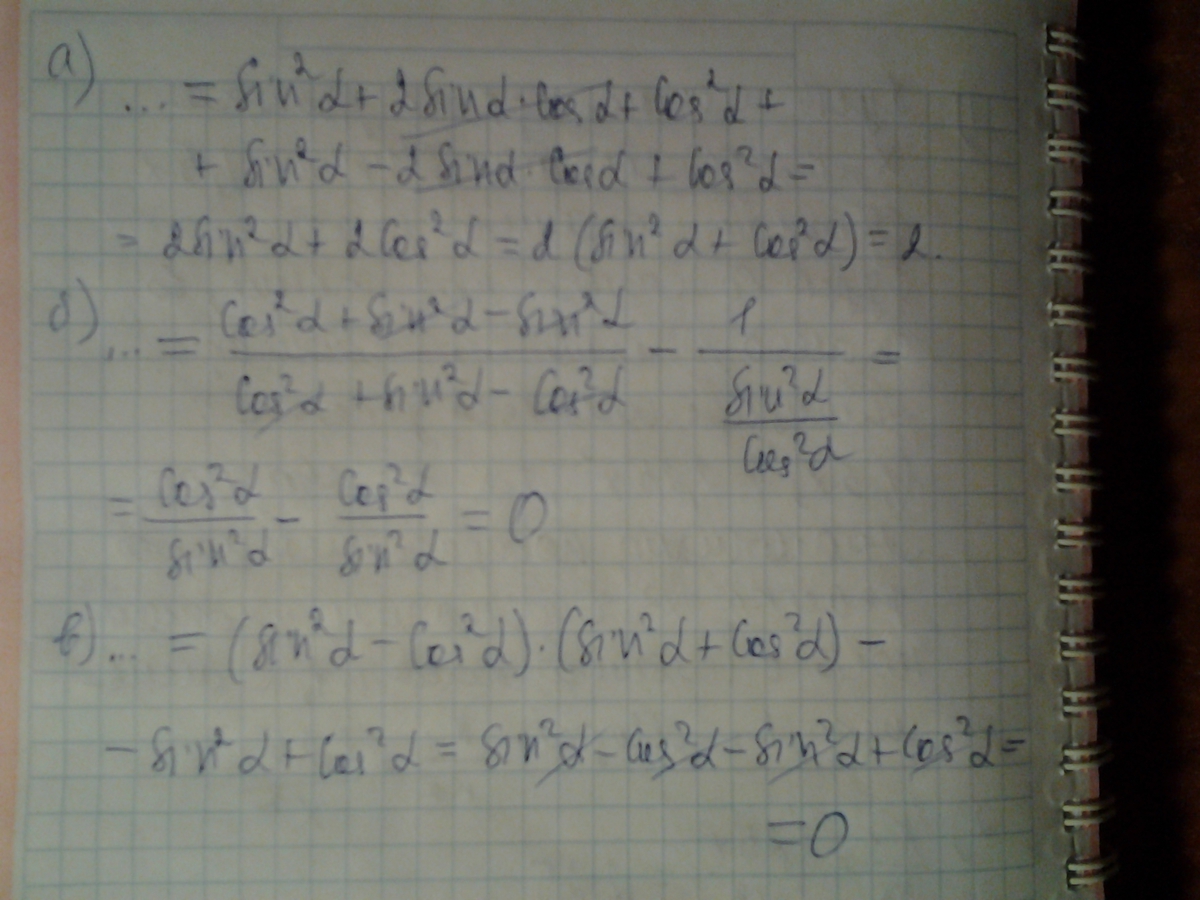 а) ... = sin²α + 2sinα·cosα + cos²α +
+ sin²α − 2sinα·cosα + cos²α =
= 2sin²α + 2cos²α = 2(sin²α + cos²α) = 2.
б) ... = (cos²α + sin²α − sin²α)/(cos²α + sin²α − cos²α) − 1/(sin²α/cos²α) =
= cos²α/sin²α − cos²α/sin²α = 0
в) ... = (sin²α − cos²α)·(sin²α + cos²α) −
− sin²α + cos²α = sin²α − cos²α − sin²α + cos²α =
= 0